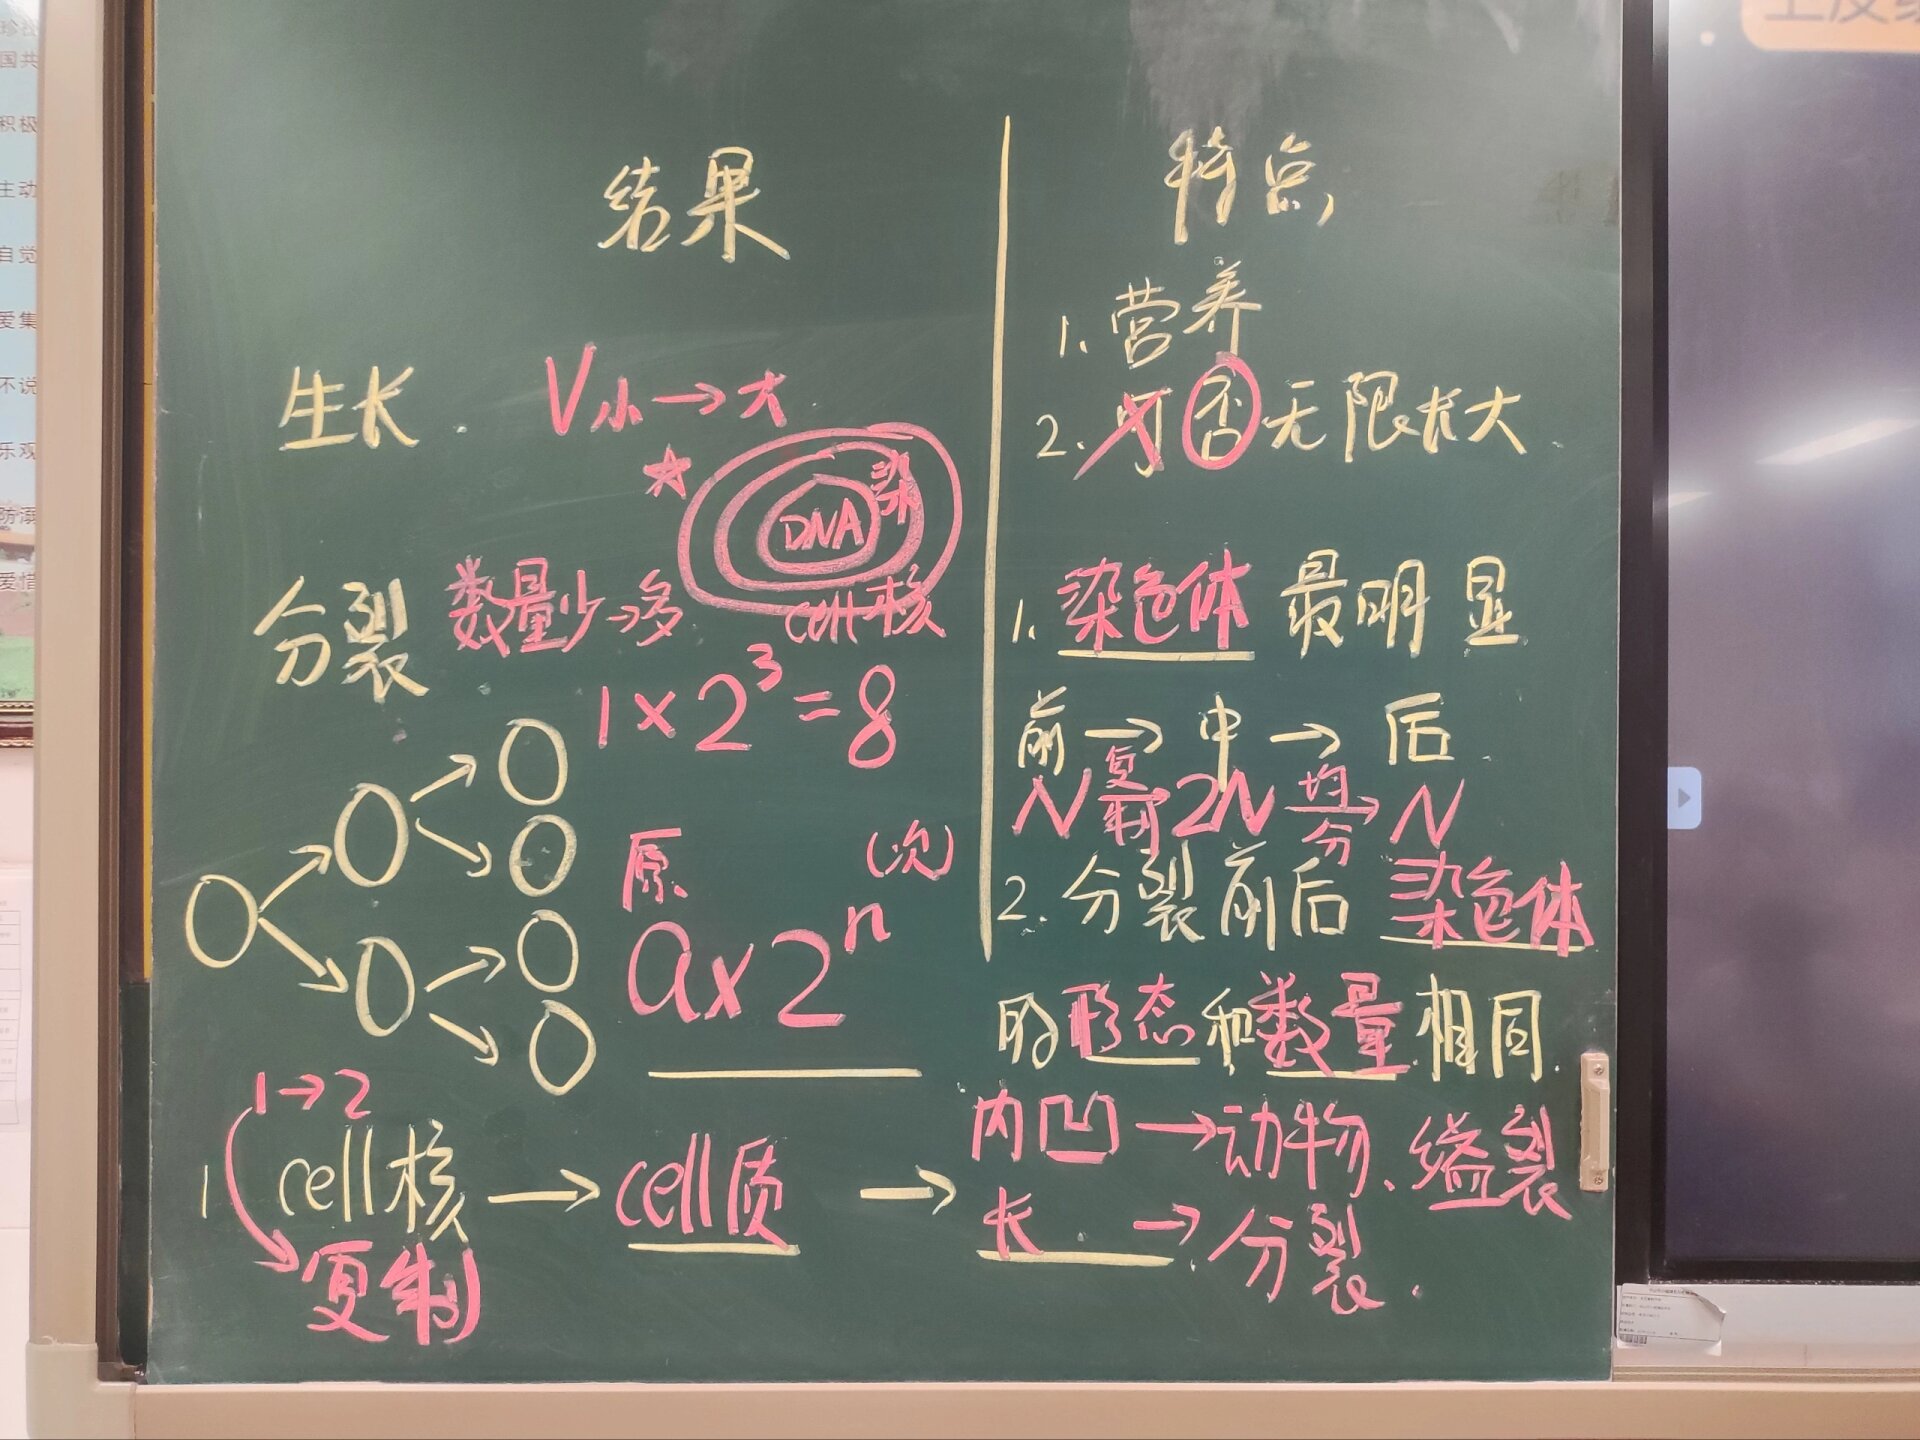 珍
国共
积极
主动
自觉
爱集
不说
乐观
防溺
爱惜
结果
特点
1. 营养
生长
V小→大
2. 可否无限长大
★
DNA
染
cell核
分裂
数量少→多
1. 染色体最明显
1×2³=8
前→中→后
N 复制 2N 均分 N
原
(次)
a×2ⁿ
2. 分裂前后染色体
的形态和数量相同.
1→2
1 cell核→cell质→
复制
内凹→动物、缢裂
长→分裂.